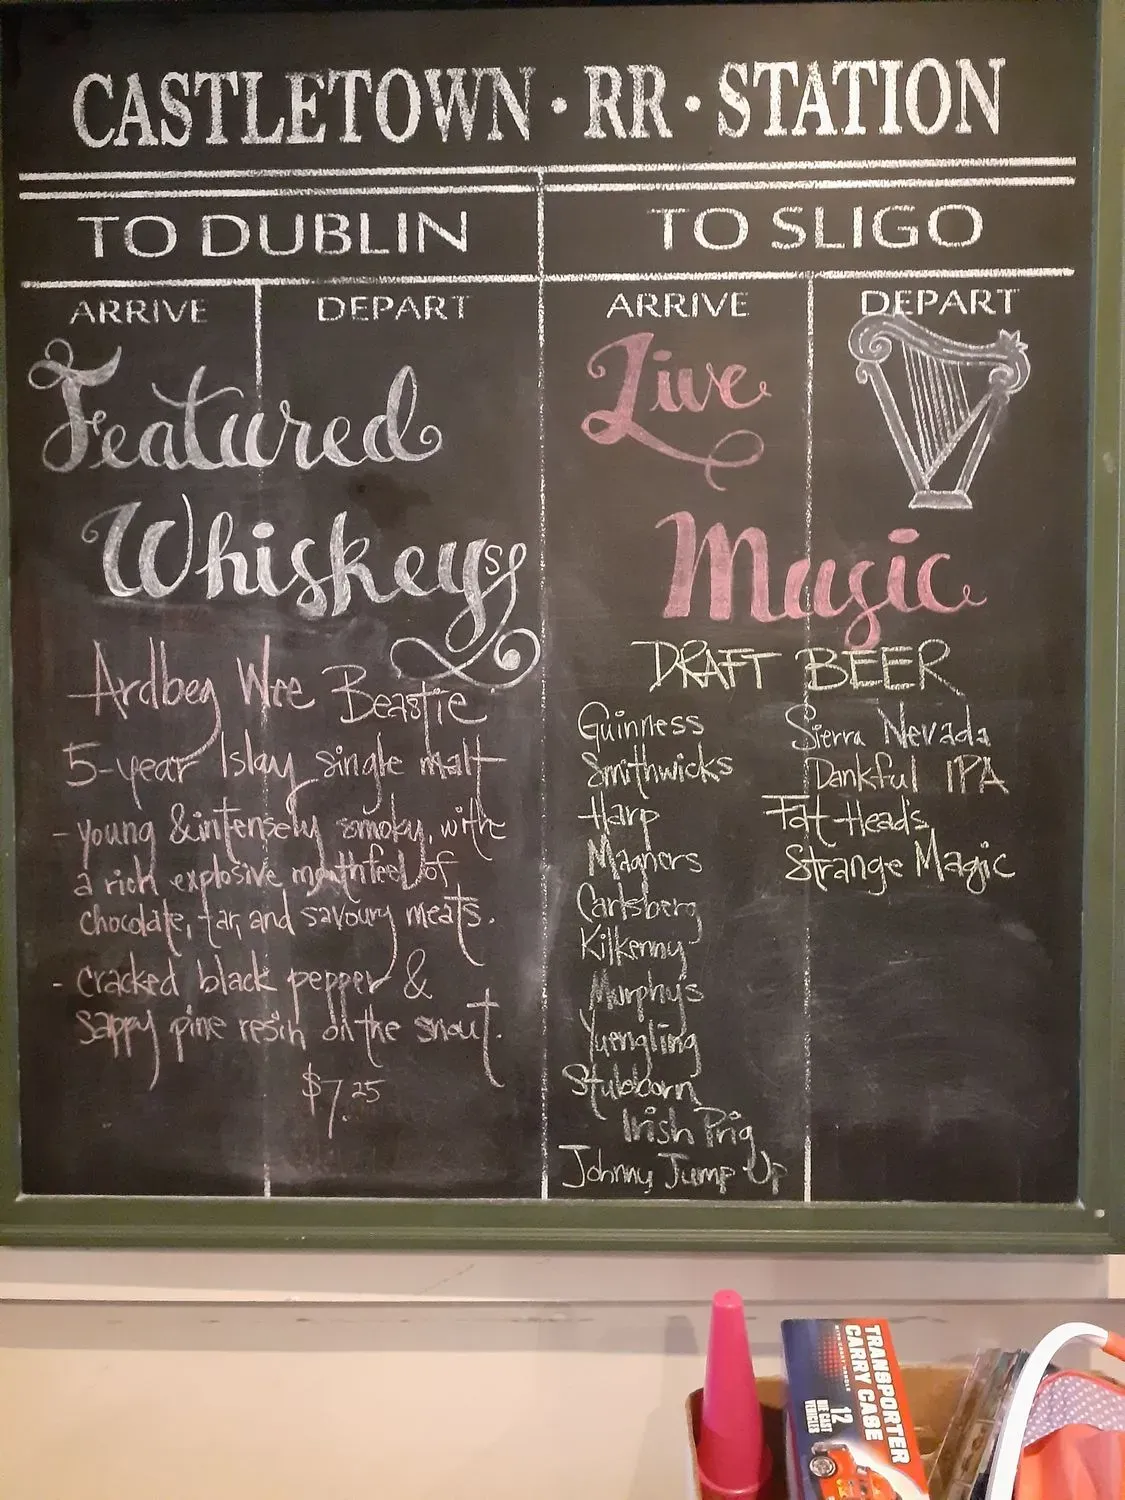 CASTLETOWN · RR · STATION
TO DUBLIN
ARRIVE DEPART
Featured
Whiskeys
Ardbeg Wee Beastie
5-year Islay single malt
- young & intensely smoky, with
a rich explosive mouthfeel of
chocolate, tar, and savoury meats.
- cracked black pepper &
sappy pine resin on the snout.
$7.25
TO SLIGO
ARRIVE DEPART
Live
Musgic
DRAFT BEER
Guinness
Smithwicks
Harp
Magners
Carlsberg
Kilkenny
Murphy's
Yuengling
Stubborn
Irish Prig
Johnny Jump Up
Sierra Nevada
Dankful IPA
Fat Head's
Strange Magic
TRANSPORTER
CARRY CASE
12
DIE CAST
VEHICLES